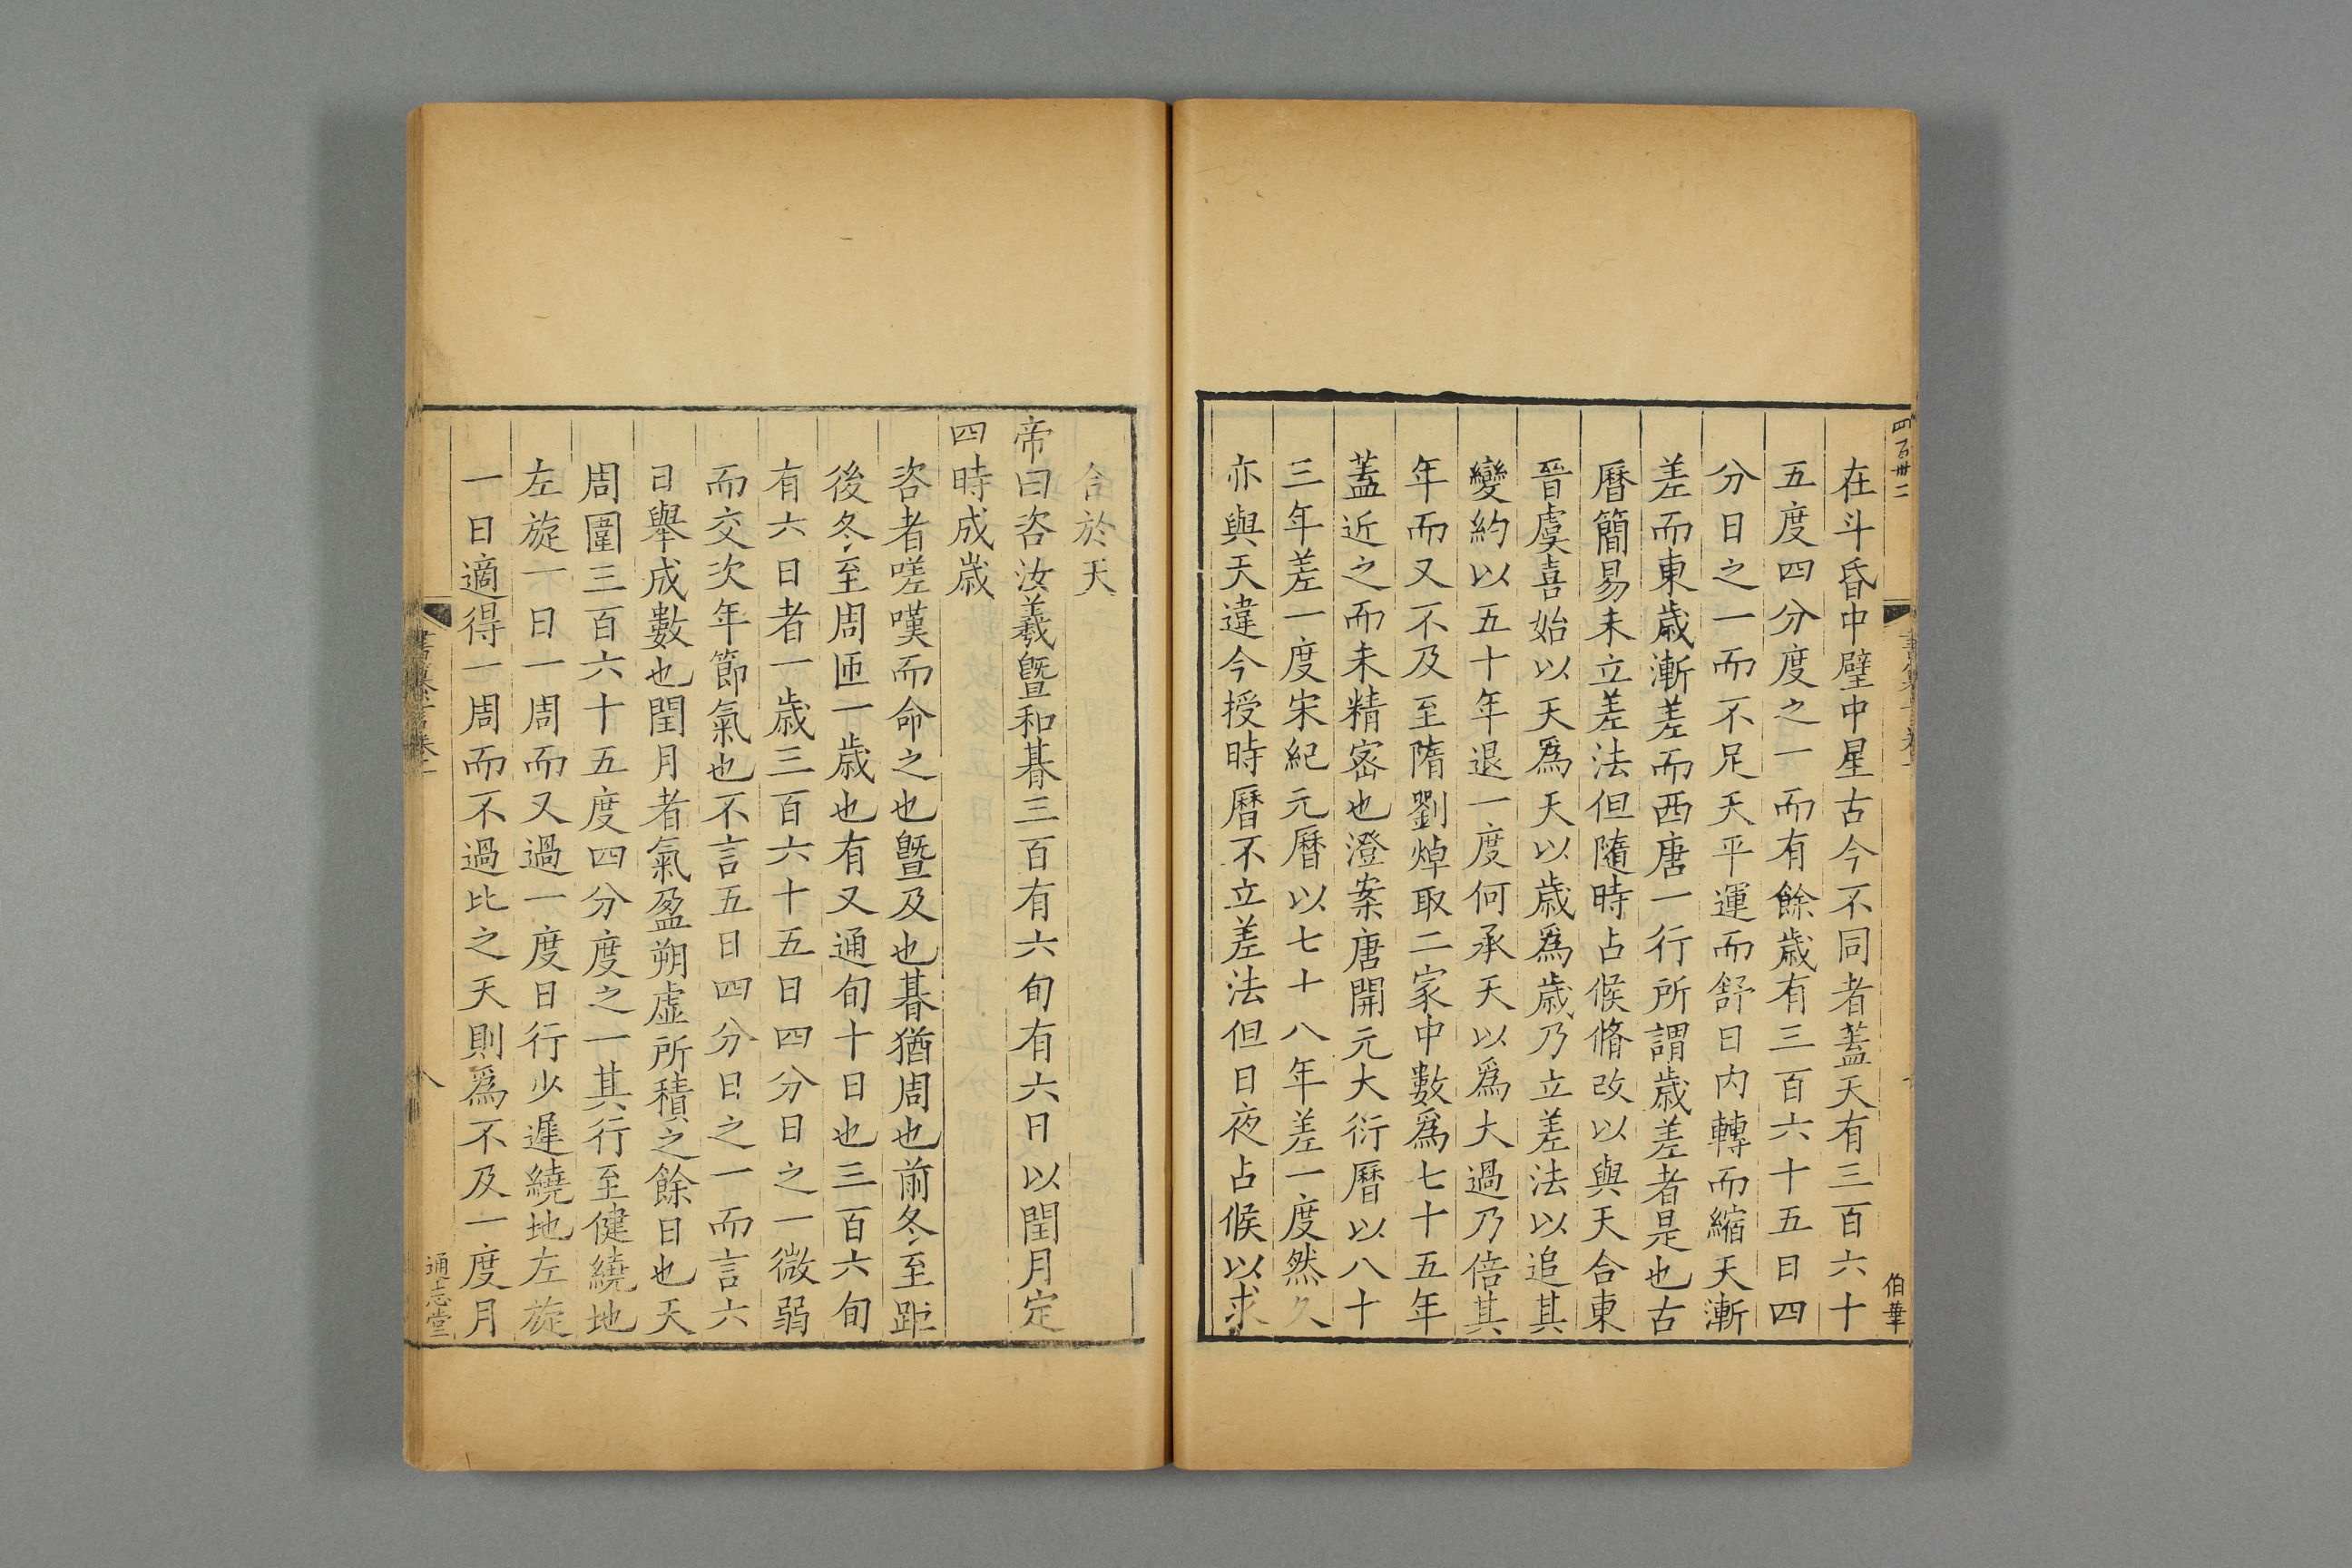 四百卅二
伯華
在斗昏中壁中星古今不同者蓋天有三百六十
五度四分度之一而有餘歳有三百六十五日四
分日之一而不足天平運而舒日内轉而縮天漸
差而東歳漸差而西唐一行所謂歳差者是也古
曆簡易未立差法但隨時占候脩改以與天合東
晉虞喜始以天爲天以歳爲歳乃立差法以追其
變約以五十年退一度何承天以爲大過乃倍其
年而又不及至隋劉焯取二家中數爲七十五年
蓋近之而未精宻也澄案唐開元大衍曆以八十
三年差一度宋紀元曆以七十八年差一度然久
亦與天違今授時曆不立差法但日夜占候以求
合於天
帝曰咨汝羲曁和朞三百有六旬有六日以閏月定
四時成歳
咨者嗟嘆而命之也曁及也朞猶周也前冬至距
後冬至周匝一歳也有又通旬十日也三百六旬
有六日者一歳三百六十五日四分日之一微弱
而交次年節氣也不言五日四分日之一而言六
日舉成數也閏月者氣盈朔虛所積之餘日也天
周圍三百六十五度四分度之一其行至健繞地
左旋一日一周而又過一度日行少遲繞地左旋
一日適得一周而不過比之天則爲不及一度月
八
通志堂